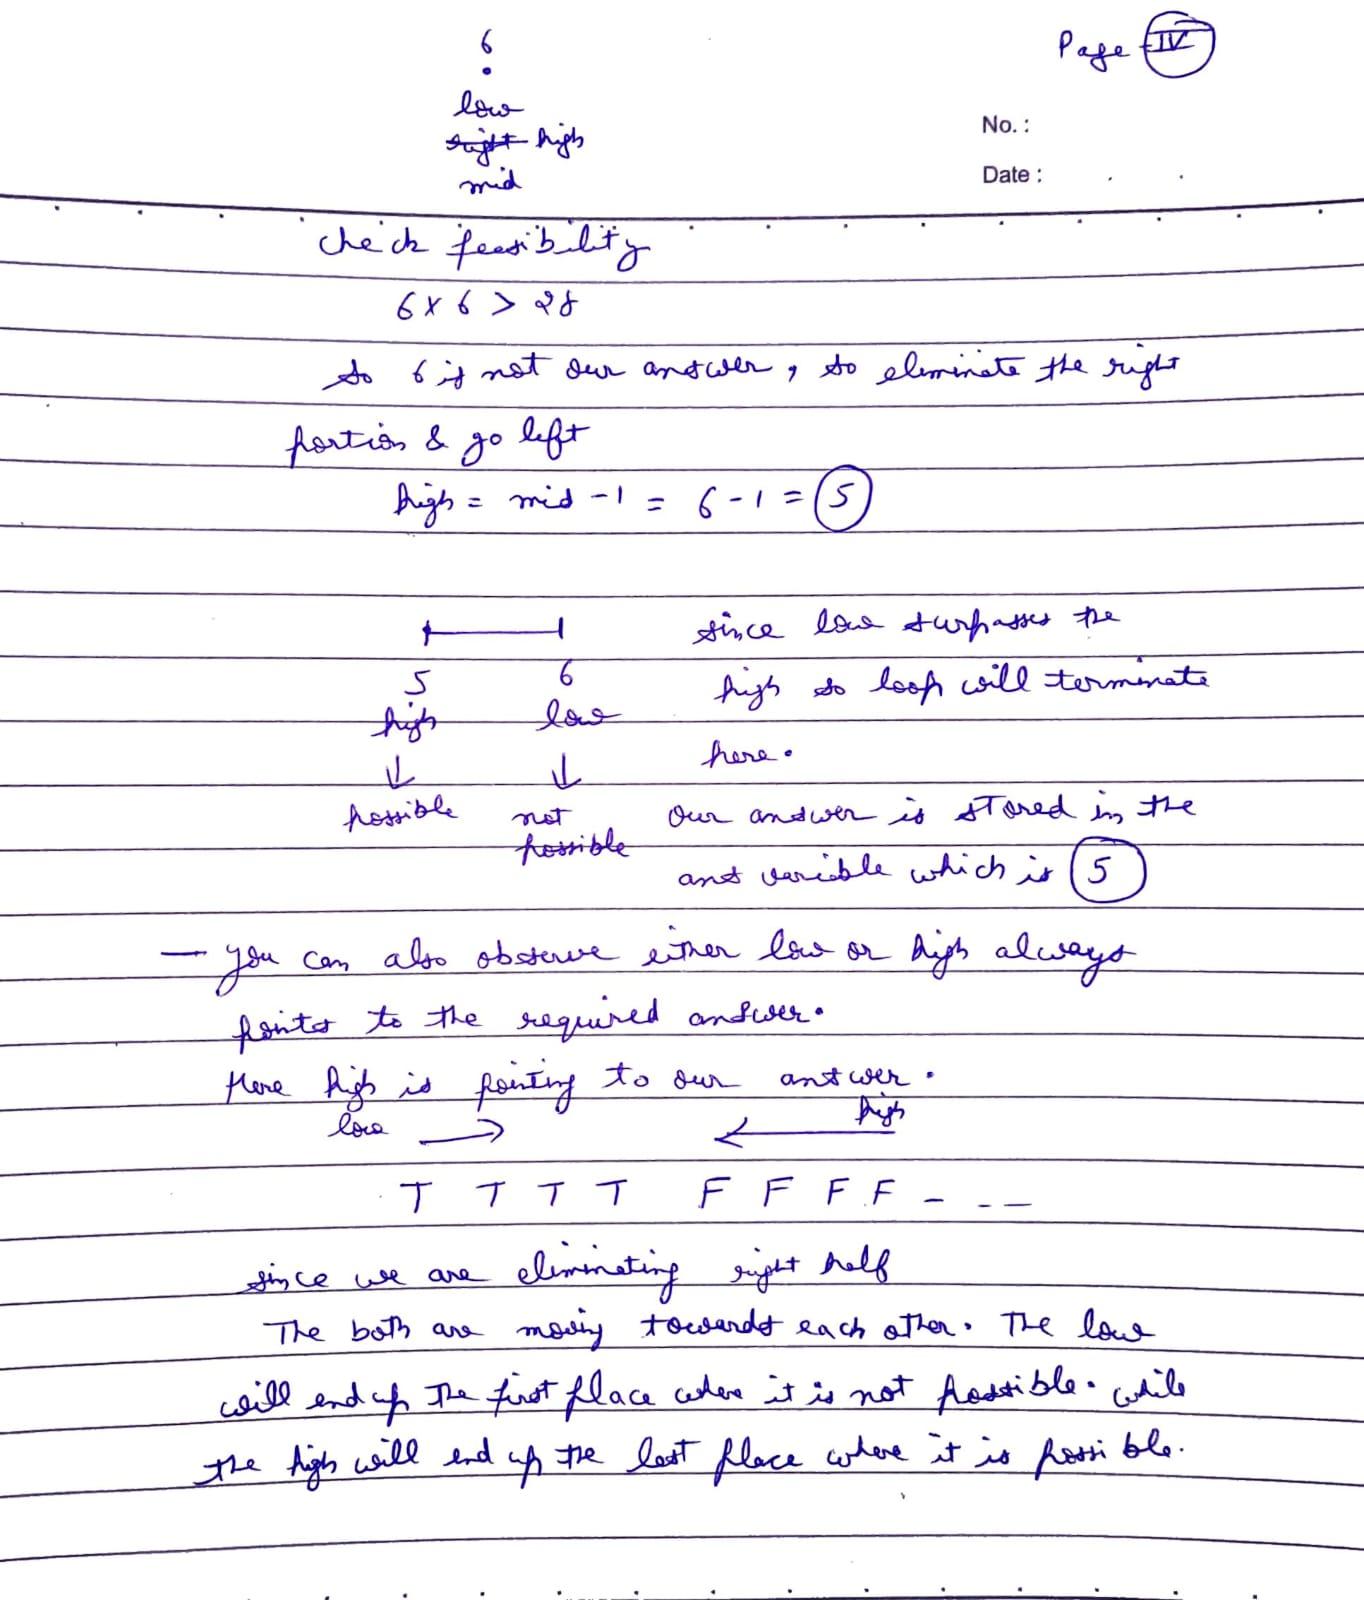 6
Page - IV
low
right high
No. :
mid
Date :
check feasibility
6 x 6 > 28
so 6 is not our answer, so eliminate the right
portion & go left
high = mid - 1 = 6 - 1 = 5
since low surpasses the
5 6 high so loop will terminate
high low
here.
possible not our answer is stored in the
possible
ans variable which is 5
— you can also observe either low or high always
points to the required answer.
Here high is pointing to our answer.
low → ← high
T T T T F F F F - - -
since we are eliminating right half
The both are moving towards each other. The low
will end up the first place where it is not possible. while
the high will end up the last place where it is possible.